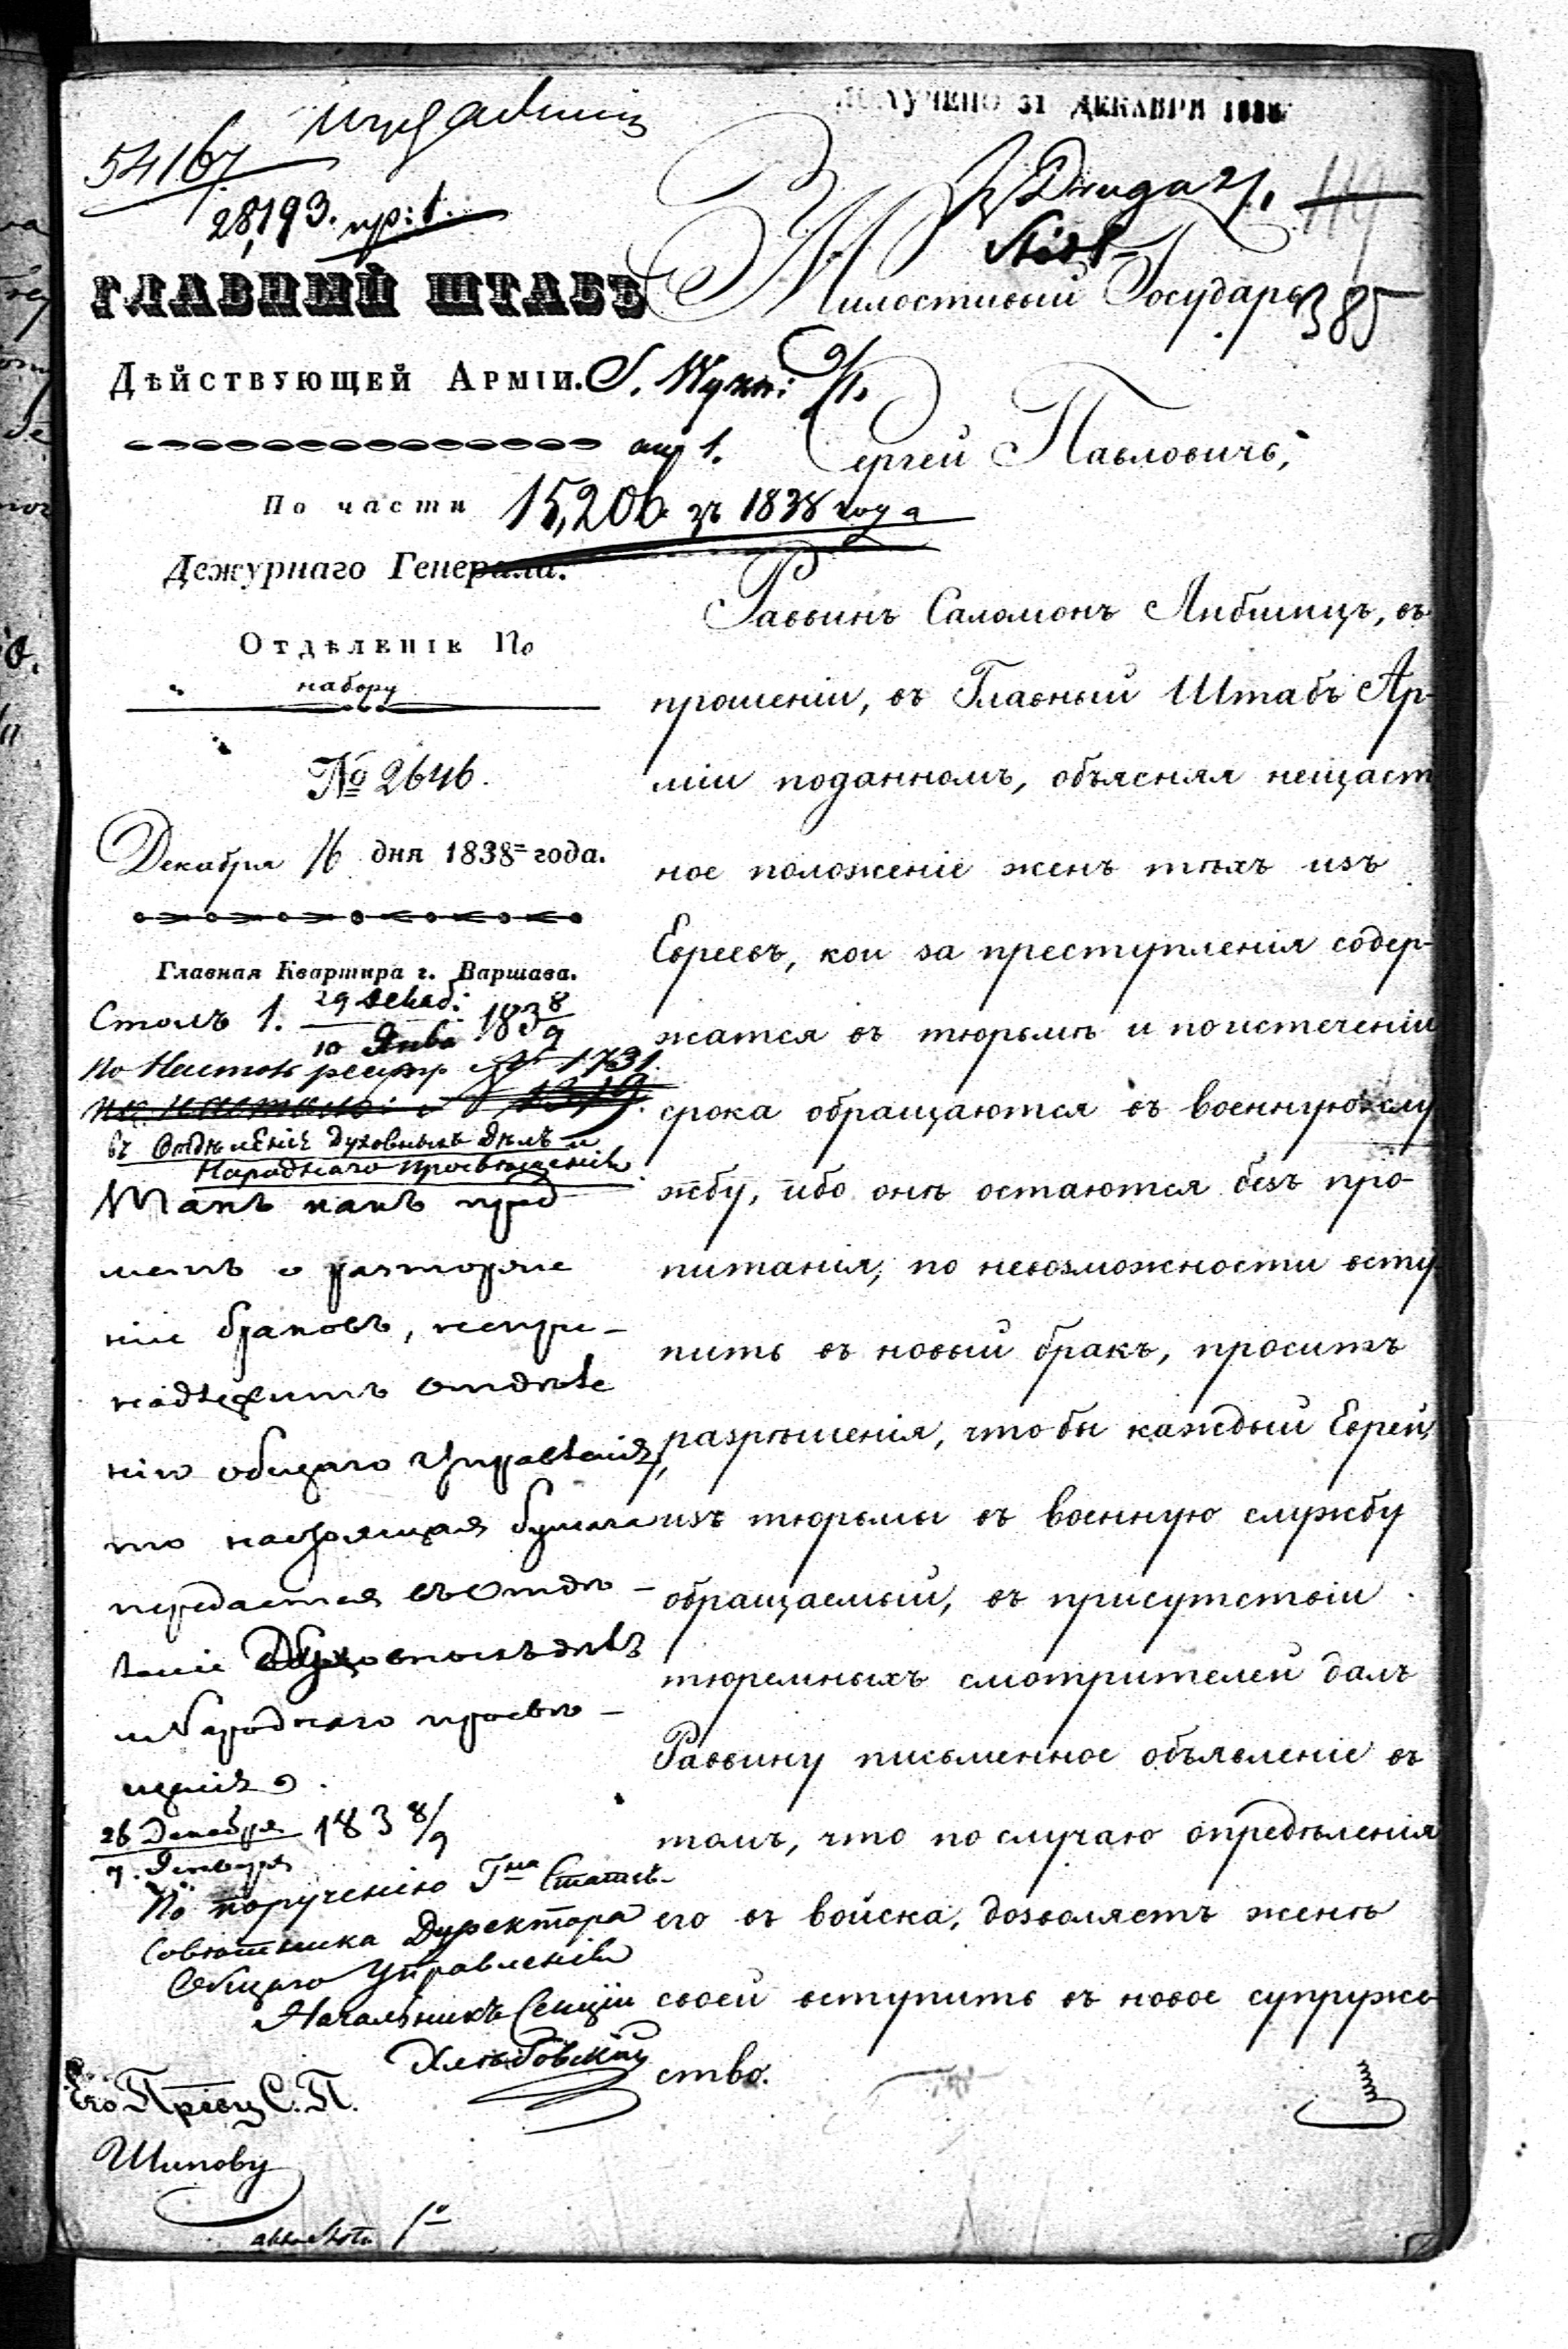 ПОЛУЧЕНО 31 ДЕКАБРЯ 1838
54167
28,193. пр: 1.
119
385
ГЛАВНЫЙ ШТАБЪ
ДѢЙСТВУЮЩЕЙ АРМІИ.
По части
15,206. зъ 1838 года
Дежурнаго Генерала.
ОТДѢЛЕНІЕ По
набору
№ 2646.
Декабря 16 дня 1838 года.
Главная Квартира г. Варшава.
Столъ 1. 29 Декаб: / 10 Янва 183 8/9
По Настол реэстр № 1731.
въ Отдѣленіе Духовныхъ Дѣлъ и
Народнаго Просвѣщенія.
Такъ какъ пред
метъ о разторже
ніи браковъ, непри-
надлежитъ Отдѣле
нію общаго Управленія,
то настоящая бумага
передается въ Отдѣ-
леніе Духовныхъ дѣлъ
и Народнаго просвѣ-
щенія.
26 Декабря / 7. Января 183 8/9
По порученію Гна Статсъ-
Совѣтника Директора
Общаго Управленія
Начальникъ Секціи
Его Превц С. П.
Шипову
Милостивый Государь
Сергей Павловичь,
Раввинъ Саломонъ Либшицъ, въ
прошеніи, въ Главный Штабъ Ар-
міи поданномъ, объясняя нещаст
ное положеніе женъ тѣхъ изъ
Евреевъ, кои за преступленія содер-
жатся въ тюрьмѣ и по истеченіи
срока обращаются въ военную слу
жбу, ибо онѣ остаются безъ про-
питанія, по невозможности всту
пить въ новый бракъ, проситъ
разрѣшенія, что бы каждый Еврей,
изъ тюрьмы въ военную службу
обращаемый, въ присутствіи
тюремныхъ смотрителей далъ
Раввину письменное объявленіе въ
томъ, что по случаю опредѣленія
его въ войска, дозволяетъ женѣ
своей вступить въ новое супруже
ство.